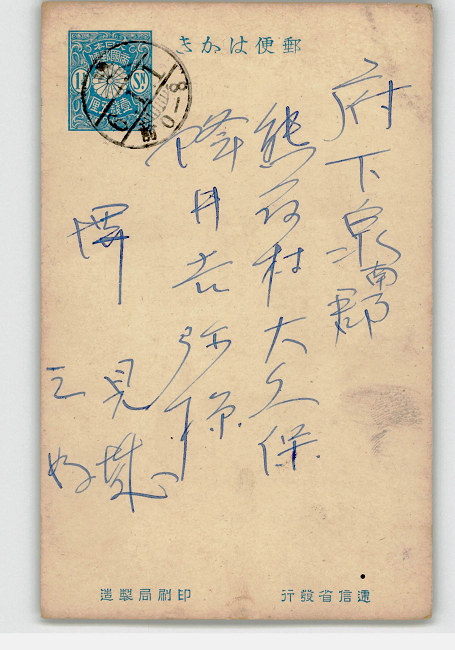 郵便はかき
府下泉南郡
熊取村大久保
降井吉弥様
堺
三好
見
遞信省發行
印刷局製造